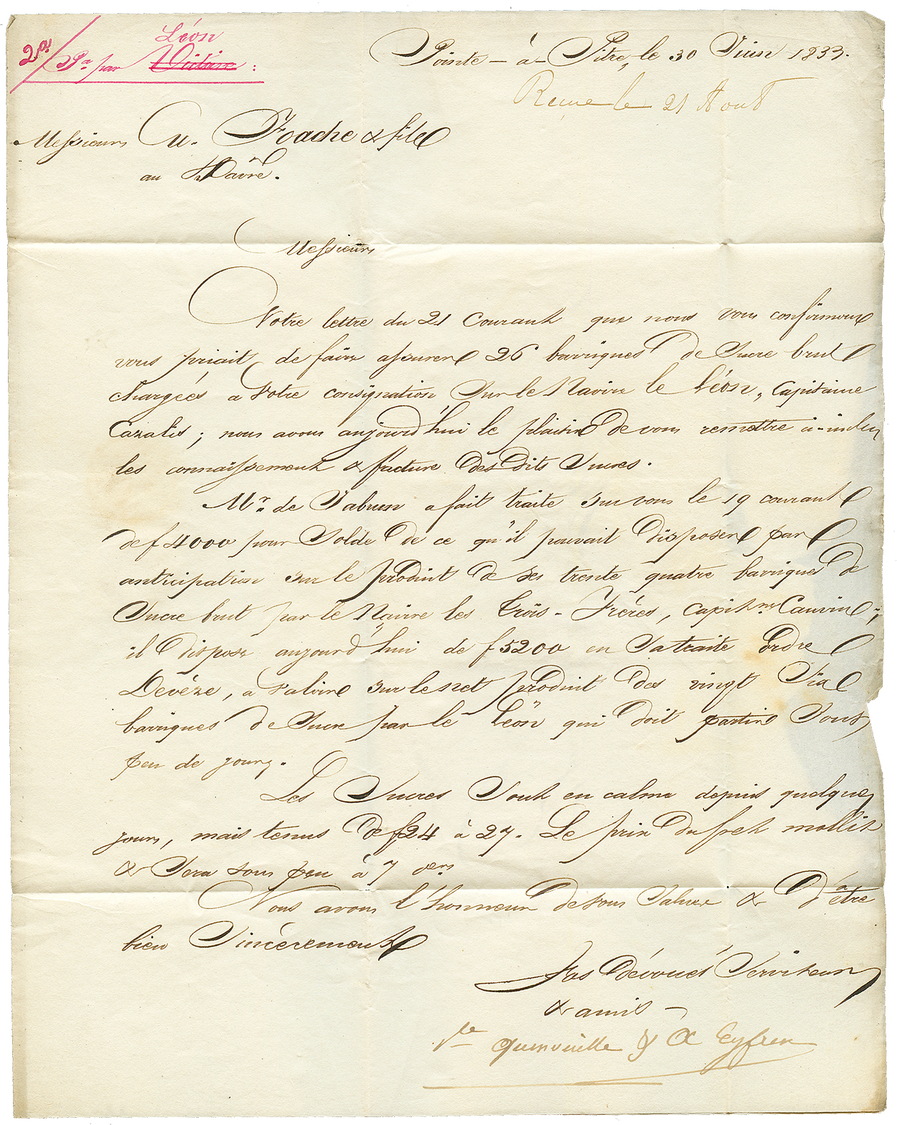 2a/ Pa. par Léon :
Pointe-à-Pitre, le 30 Juin 1833.
Reçue le 21 Août
Messieurs M. Foache & fils
au Hâvre.
Messieurs
Notre lettre du 21 courant que nous vous confirmons
vous priait de faire assurer 26 barriques de Sucre brut
chargées à Votre consignation Sur le Navire le Léon, Capitaine
Cazalis; nous avons aujourd'hui le plaisir de vous remettre ci-inclus
les connaissement & facture des dits Sucres.
Mr. de Jabrun a fait traite sur vous le 19 courant
de f 4000 pour Solde de ce qu'il pouvait disposer par
anticipation sur le produit de ses trente quatre barriques de
Sucre brut par le Navire les Trois-Frères, capitne Cauvin;
il dispose aujourd'hui de f 5200 en Sa traite ordre
Devèze, à valoir sur le net produit des vingt Six
barriques de Sucre par le Léon qui doit partir Sous
peu de jours.
Les Sucres Sont en calme depuis quelques
jours, mais tenus de f 24 à 27. Le prix du fret mollit
& Sera sous peu à 7 ders
Nous avons l'honneur de vous Saluer & d'être
bien Sincèrement
Vos dévoués Serviteurs
& amis